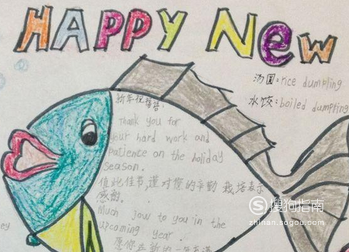 HAPPY New
汤圆:rice dumpling
水饺:boiled dumpling
新年祝福语:
Thank you for
your hard work and
patience on the holiday
season.
值此佳节,谨对您的辛勤
感谢.
Much joy to you in the
upcoming year.
愿你在新的一年
搜狗指南
zhinan.sogou.com